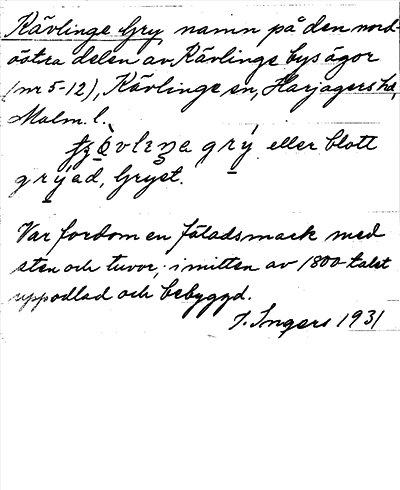 Kävlinge Gry namn på den nord-
östra delen av Kävlinge bys ägor
(nr 5-12), Kävlinge sn, Harjagers hd,
Malm. l.
grý eller blott
grýad, Gryet.
Var fordom en fäladsmark med
sten och tuvor; i mitten av 1800-talet
uppodlad och bebyggd.
I. Ingers 1931